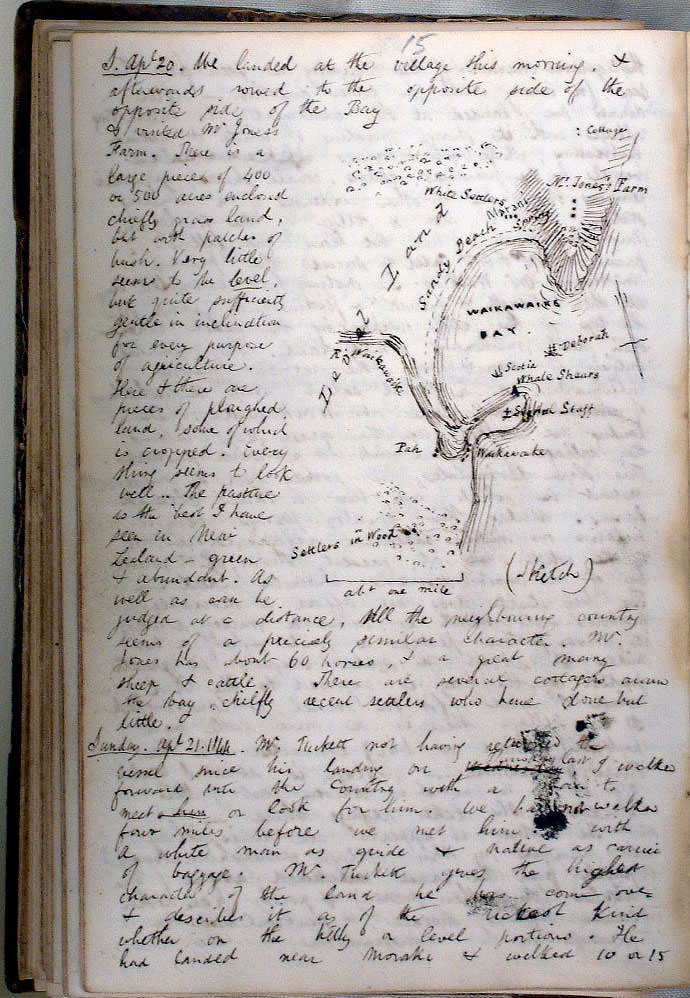 15
S. Apl 20. We landed at the village this morning. &
afterwards rowed to the opposite side of the
opposite side of the Bay
& visited Mr Jones's
Farm. There is a
large pieces of 400
or 500 acres enclosed
chiefly grass land,
but with patches of
bush. Very little
seems to be level,
but quite sufficiently
gentle in inclination
for every purpose
of agriculture.
Here & there are
pieces of ploughed
land, some of which
is cropped. Every
thing seems to look
well. The pasture
is the best I have
seen in New
Zealand - green
& abundant. As
well as can be
judged at a distance, all the neighbouring country
seems of a precisely similar character. Mr.
Jones has about 60 horses, & a great many
sheep & cattle. There are several cottages
the bay, chiefly recent settlers who have done but
little.
Sunday. Apl 21. 1844. Mr. Tuckett not having returned to the
vessel since his landing on last I walked
forward into the country with a to
meet him or look for him. We had not walked
four miles before we met him with
a white man as guide & native as carrier
of baggage. Mr. Tuckett gives the highest
character of the land he has come over
& describes it as of the richest kind
whether on the hilly or level portions. He
had landed near Moraki & walked 10 or 15
: Cottages
Mr. Jones's Farm
White Settlers
Sandy Beach
Land
WAIKAWAIKE
BAY.
Deborah
Scotia
Whale Shears
Signal Staff
R. Waikawaite
Pah
Waikawaike
Settlers in Wood
abt one mile
(Sketch)